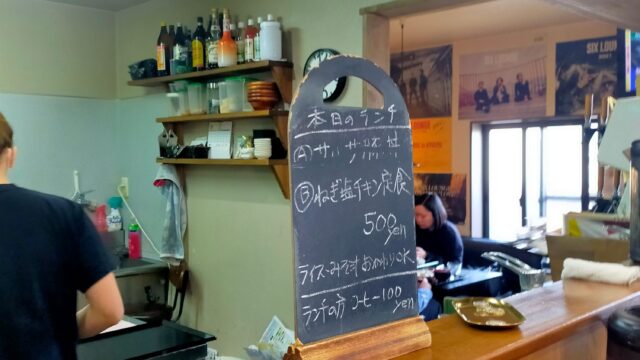 本日のランチ
Ⓑねぎ塩チキン定食
500yen
ライス・みそ汁おかわりOK
ランチの方 コーヒー100yen
SIX LOUNGE
SIX LOUN